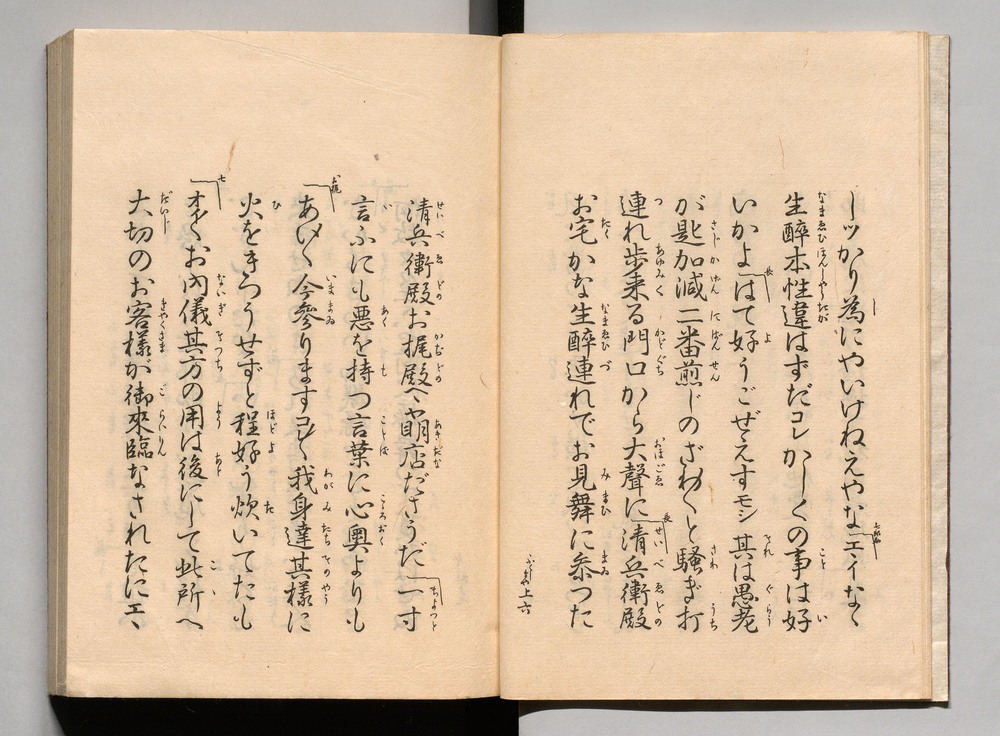 しツかり為にやいけねえやなエイなく
生醉本性違はずだコレかしくの事は好
いかよはて好うござえすモシ其は愚老
が匙加減二番煎じのざわ〱と騒ぎ打
連れ歩来る門口から大聲に清兵衛殿
お宅かな生醉連れでお見舞に参つた
上六
清兵衛殿お梶殿へや明店ださうだ一寸
言ふにも悪を持つ言葉に心奥よりも
あい〱今参りますコレ〱我身達其様に
火をきろうせずと程好う炊いてたも
オイ〱お内儀其方の用は後にして此所へ
大切のお客様が御來臨なされたにエヽ